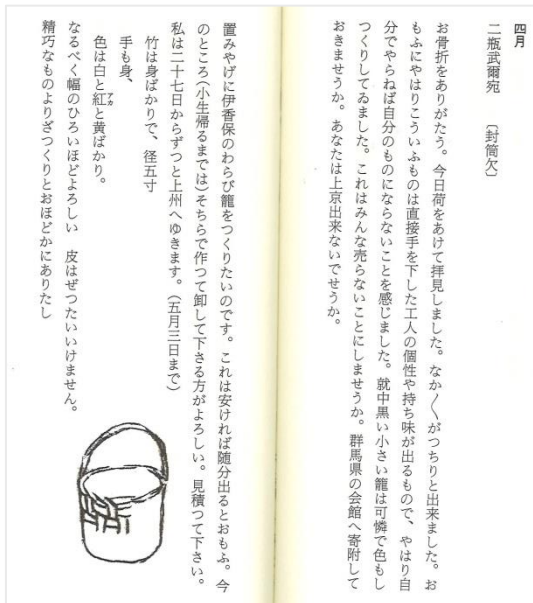 四月
二瓶武爾宛　〔封筒欠〕
お骨折をありがたう。今日荷をあけて拝見しました。なか〳〵がつちりと出来ました。お
もふにやはりこういふものは直接手を下した工人の個性や持ち味が出るもので、やはり自
分でやらねば自分のものにならないことを感じました。就中黒い小さい籠は可憐で色もし
つくりしてゐました。これはみんな売らないことにしませうか。群馬県の会館へ寄附して
おきませうか。あなたは上京出来ないでせうか。
置みやげに伊香保のわらび籠をつくりたいのです。これは安ければ随分出るとおもふ。今
のところ(小生帰るまでは)そちらで作つて卸して下さる方がよろしい。見積つて下さい。
私は二十七日からずつと上州へゆきます。(五月三日まで)
竹は身ばかりで、径五寸
手も身、
色は白と紅アカと黄ばかり。
なるべく幅のひろいほどよろしい　皮はぜつたいいけません。
精巧なものよりざつくりとおほどかにありたし